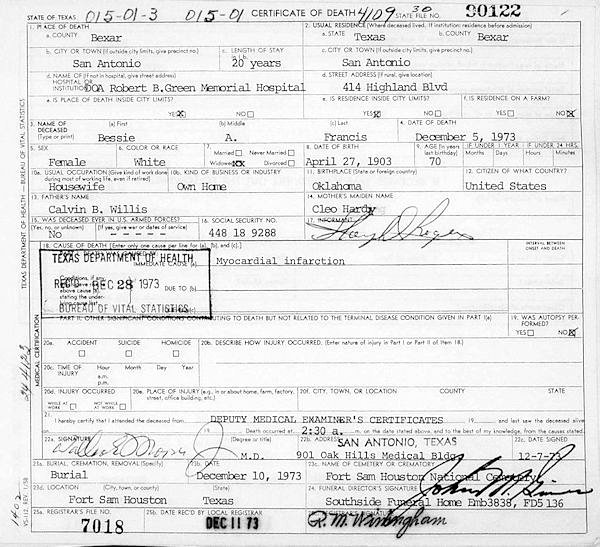 STATE OF TEXAS 015-01-3 015-01 CERTIFICATE OF DEATH 4109 STATE FILE NO. 30 90122
1. PLACE OF DEATH 2. USUAL RESIDENCE (Where deceased lived. If institution: residence before admission)
a. COUNTY Bexar a. STATE Texas b. COUNTY Bexar
b. CITY OR TOWN (If outside city limits, give precinct no.) c. LENGTH OF STAY c. CITY OR TOWN (If outside city limits, give precinct no.)
San Antonio 20 years San Antonio
d. NAME OF (If not in hospital, give street address) d. STREET ADDRESS (If rural, give location)
HOSPITAL OR INSTITUTION DOA Robert B.Green Memorial Hospital 414 Highland Blvd
e. IS PLACE OF DEATH INSIDE CITY LIMITS? e. IS RESIDENCE INSIDE CITY LIMITS? f. IS RESIDENCE ON A FARM?
YES X NO YES X NO YES NO X
3. NAME OF DECEASED (Type or print) (a) First (b) Middle (c) Last 4. DATE OF DEATH
Bessie A. Francis December 5, 1973
5. SEX 6. COLOR OR RACE 7. Married Never Married 8. DATE OF BIRTH 9. AGE (In years last birthday) IF UNDER 1 YEAR IF UNDER 24 HRS.
Months Days Hours Minutes
Female White Widowed XX Divorced April 27, 1903 70
10a. USUAL OCCUPATION (Give kind of work done during most of working life, even if retired) 10b. KIND OF BUSINESS OR INDUSTRY 11. BIRTHPLACE (State or foreign country) 12. CITIZEN OF WHAT COUNTRY?
Housewife Own Home Oklahoma United States
13. FATHER'S NAME 14. MOTHER'S MAIDEN NAME
Calvin B. Willis Cleo Hardy
15. WAS DECEASED EVER IN U.S. ARMED FORCES? 16. SOCIAL SECURITY NO. 17. INFORMANT
(Yes, no, or unknown) (If yes, give war or dates of service)
No 448 18 9288
18. CAUSE OF DEATH [Enter only one cause per line for (a), (b), and (c).] INTERVAL BETWEEN ONSET AND DEATH
TEXAS DEPARTMENT OF HEALTH
IMMEDIATE CAUSE (a) Myocardial infarction
Conditions, if any
REC'D DEC 28 1973 DUE TO (b)
above cause (a), stating the under-
lying cause last
BUREAU OF VITAL STATISTICS
PART II. OTHER SIGNIFICANT CONDITIONS CONTRIBUTING TO DEATH BUT NOT RELATED TO THE TERMINAL DISEASE CONDITION GIVEN IN PART I(a) 19. WAS AUTOPSY PERFORMED?
YES NO X
20a. ACCIDENT SUICIDE HOMICIDE 20b. DESCRIBE HOW INJURY OCCURRED. (Enter nature of injury in Part I or Part II of item 18.)
20c. TIME OF INJURY Hour Month Day Year
a.m.
p.m.
20d. INJURY OCCURRED 20e. PLACE OF INJURY (e.g., in or about home, farm, factory, street, office building, etc.) 20f. CITY, TOWN, OR LOCATION COUNTY STATE
WHILE AT WORK NOT WHILE AT WORK
21. I hereby certify that I attended the deceased from DEPUTY MEDICAL EXAMINER'S CERTIFICATES 19 and last saw the deceased alive
Death occurred at 2:30 a. m. on the date stated above, and to the best of my knowledge, from the causes stated.
22a. SIGNATURE (Degree or title) 22b. ADDRESS SAN ANTONIO, TEXAS 22c. DATE SIGNED
M.D. 901 Oak Hills Medical Bldg. 12-7-73
23a. BURIAL, CREMATION, REMOVAL (Specify) 23b. DATE 23c. NAME OF CEMETERY OR CREMATORY
Burial December 10, 1973 Fort Sam Houston National Cemetery
23d. LOCATION (City, town, or county) (State) 24. FUNERAL DIRECTOR'S SIGNATURE
Fort Sam Houston Texas Southside Funeral Home Emb3838, FD5136
25a. REGISTRAR'S FILE NO. 25b. DATE REC'D BY LOCAL REGISTRAR SIGNATURE
7018 DEC 11 73 R.M. Winingham
TEXAS DEPARTMENT OF HEALTH—BUREAU OF VITAL STATISTICS
MEDICAL CERTIFICATION